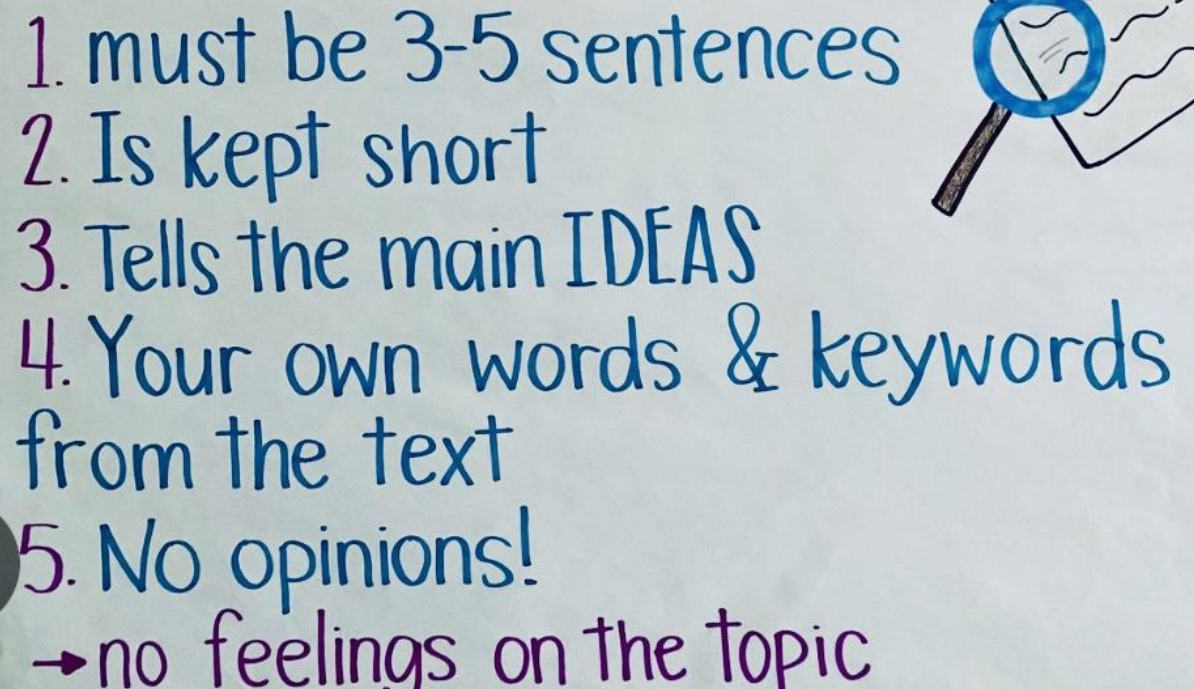 1. must be 3-5 sentences
2. Is kept short
3. Tells the main IDEAS
4. Your own words & keywords
from the text
5. No opinions!
→no feelings on the topic